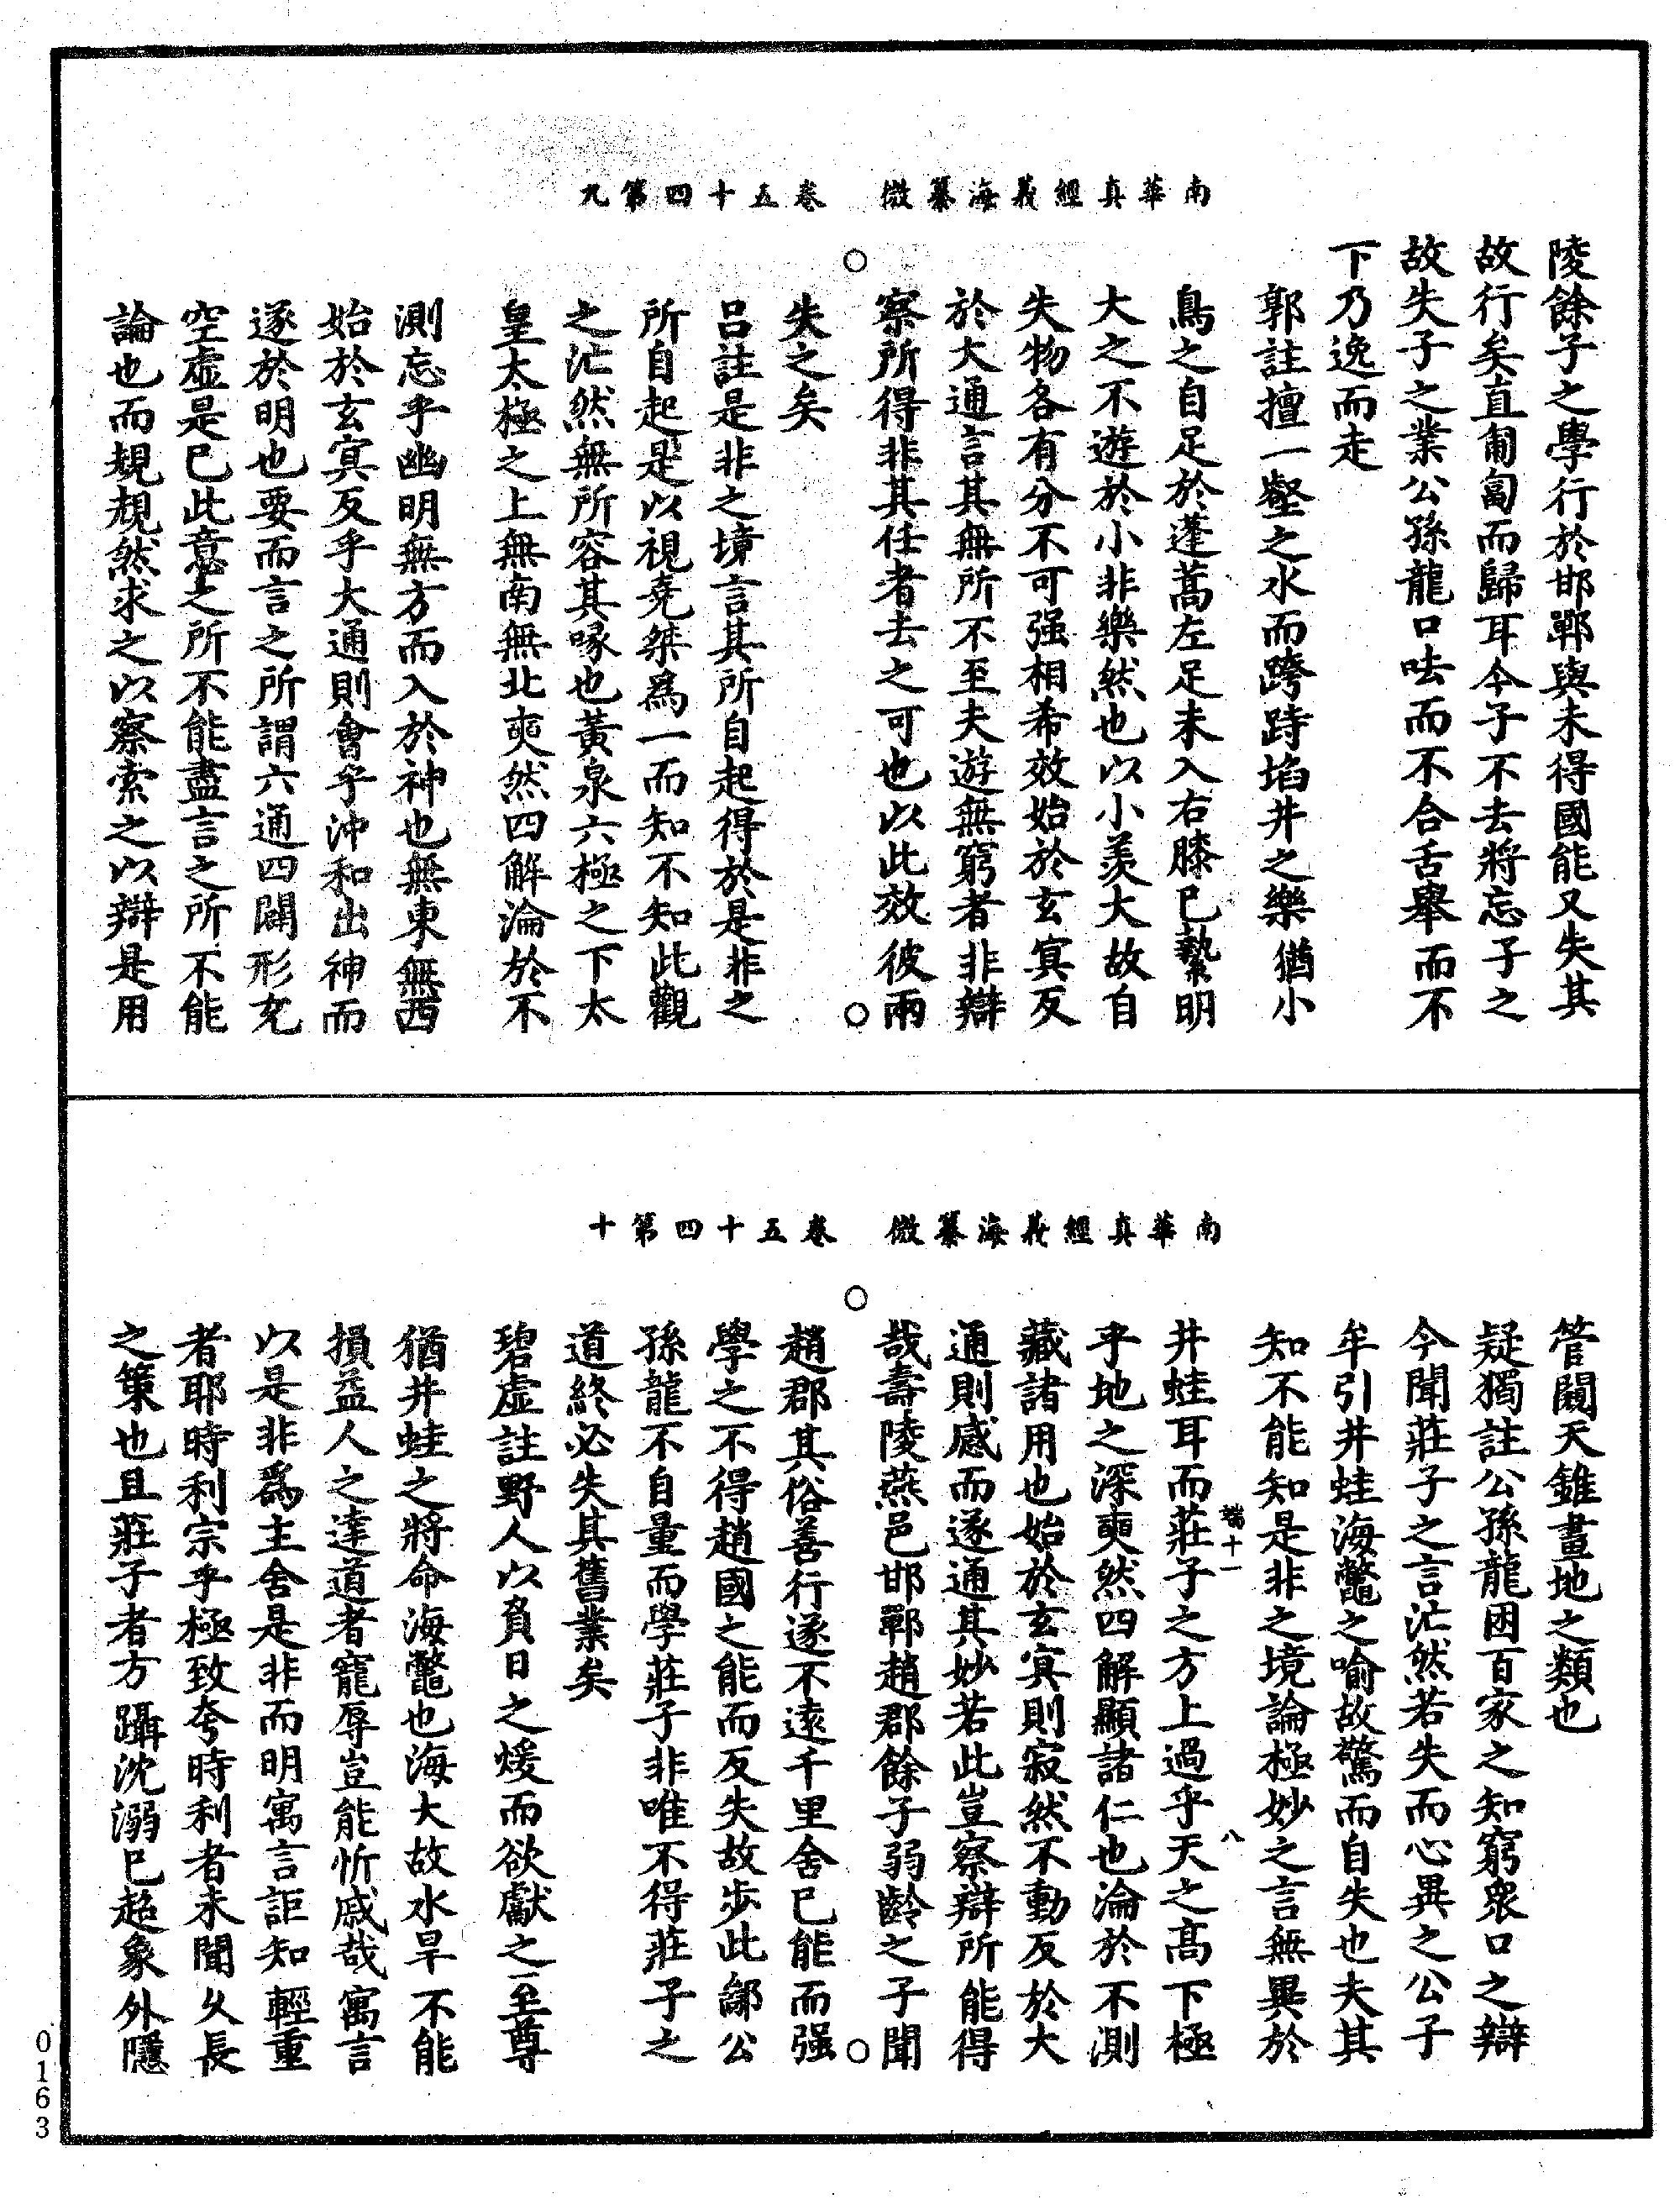 南華真經義海纂微　卷五十四第九
陵餘子之學行於邯鄲與未得國能又失其
故行矣直匍匐而歸耳今子不去將忘子之
故失子之業公孫龍口呿而不合舌舉而不
下乃逸而走
郭註擅一壑之水而跨跱埳井之樂猶小
鳥之自足於蓬蒿左足未入右膝已縶明
大之不遊於小非樂然也以小羨大故自
失物各有分不可强相希效始於玄冥反
於大通言其無所不至夫遊無窮者非辯
察所得非其任者去之可也以此效彼兩
失之矣
呂註是非之境言其所自起得於是非之
所自起是以視堯桀為一而知不知此觀
之茫然無所容其喙也黃泉六極之下太
皇太極之上無南無北奭然四解淪於不
測忘乎幽明無方而入於神也無東無西
始於玄冥反乎大通則會乎沖和出神而
遂於明也要而言之所謂六通四闢形充
空虛是已此意之所不能盡言之所不能
論也而規規然求之以察索之以辯是用
南華真經義海纂微　卷五十四第十
管闚天錐畫地之類也
疑獨註公孫龍困百家之知窮衆口之辯
今聞莊子之言茫然若失而心異之公子
牟引井蛙海鼈之喻故驚而自失也夫其
知不能知是非之境論極妙之言無異於
井蛙耳而莊子之方上過乎天之高下極
端十一　八
乎地之深奭然四解顯諸仁也淪於不測
藏諸用也始於玄冥則寂然不動反於大
通則感而遂通其妙若此豈察辯所能得
哉壽陵燕邑邯鄲趙郡餘子弱齡之子聞
趙郡其俗善行遂不遠千里舍已能而强
學之不得趙國之能而反失故步此鄙公
孫龍不自量而學莊子非唯不得莊子之
道終必失其舊業矣
碧虛註野人以負日之煖而欲獻之至尊
猶井蛙之將命海鼈也海大故水旱不能
損益人之達道者寵辱豈能忻戚哉寓言
以是非為主舍是非而明寓言詎知輕重
者耶時利宗乎極致夸時利者未聞久長
之策也且莊子者方躡沈溺已超象外隱
0163